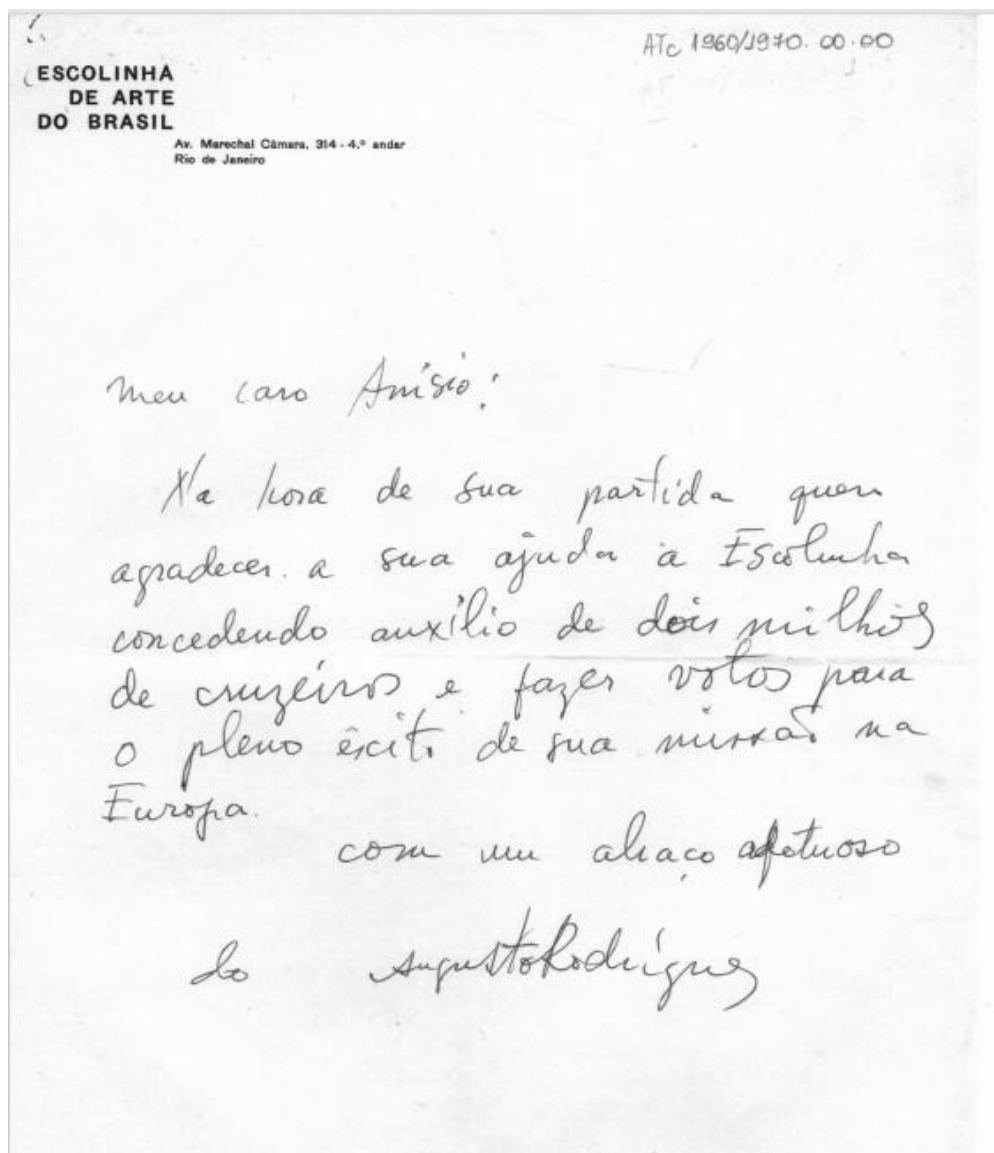 ATc 1960/1970.00.00
ESCOLINHA
DE ARTE
DO BRASIL
Av. Marechal Câmara, 314 - 4.º andar
Rio de Janeiro
Meu caro Anísio:
Na hora de sua partida quero
agradecer a sua ajuda à Escolinha
concedendo auxílio de dois milhões
de cruzeiros e fazer votos para
o pleno êxito de sua missão na
Europa.
com um abraço afetuoso
do Augusto Rodrigues